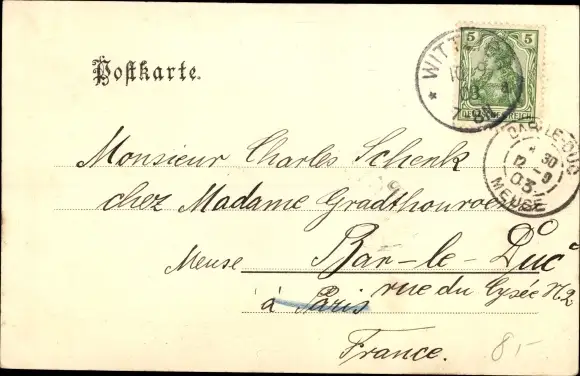 Postkarte.
5 5
WITT
10 9
03
7-8N.
BAR-LE-DUC
* 30
12 -9
03
MEUSE
Monsieur Charles Schenk
chez Madame
Meuse Bar-le-Duc
rue du Lysée N 2
à Paris
France.
8,-